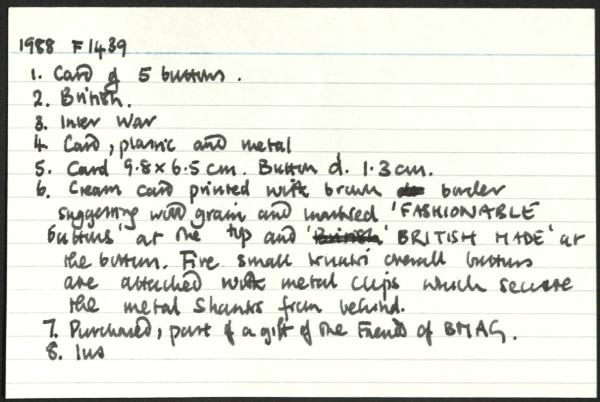 1988 F1439
1. Card of 5 buttons.
2. British.
3. Inter War
4. Card, plastic and metal
5. Card 9.8 x 6.5 cm. Button d. 1.3 cm.
6. Cream card printed with brown border
suggesting wood grain and marked 'FASHIONABLE
buttons' at the top and 'BRITISH MADE' at
the bottom. Five small khaki overall buttons
are attached with metal clips which secure
the metal shanks from behind.
7. Purchased, part of a gift of the Friends of BMAG.
8. Ius